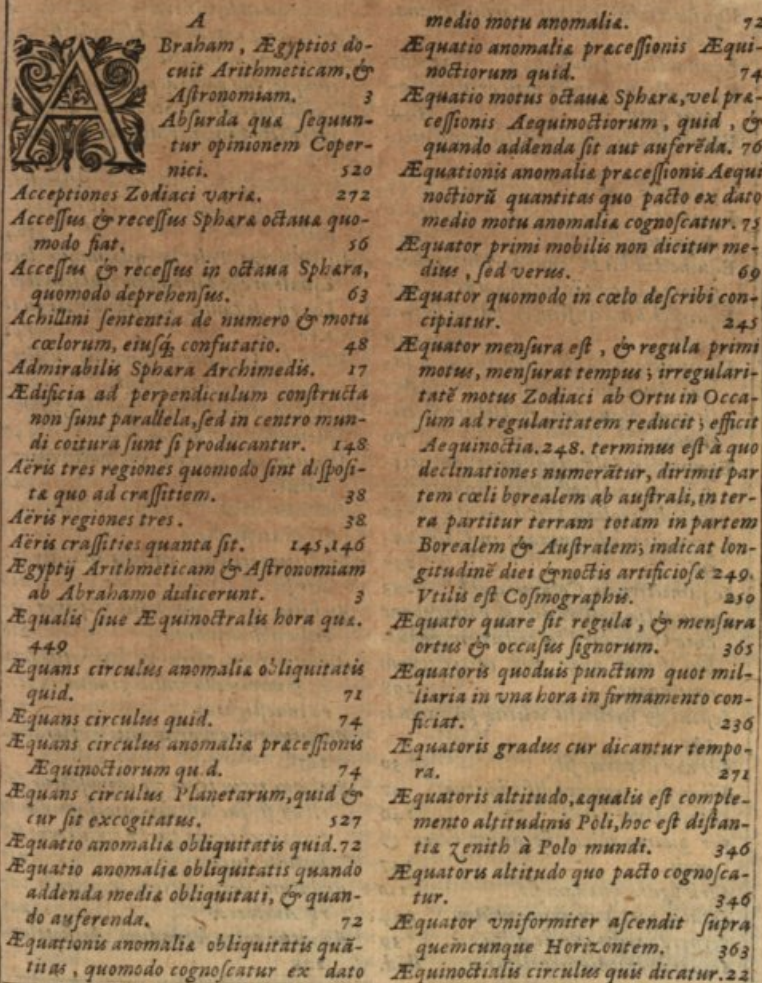 A
ABraham, Ægyptios do-
cuit Arithmeticam, &
Aſtronomiam. 3
Abſurda quæ ſequun-
tur opinionem Coper-
nici. 520
Acceptiones Zodiaci variæ. 272
Acceſſus & receſſus Sphæræ octauæ quo-
modo fiat. 56
Acceſſus & receſſus in octaua Sphæra,
quomodo deprehenſus. 63
Achillini ſententia de numero & motu
cœlorum, eiuſq́; confutatio. 48
Admirabilis Sphæra Archimedis. 17
Ædificia ad perpendiculum conſtructa
non ſunt parallela, ſed in centro mun-
di coitura ſunt ſi producantur. 148
Aëris tres regiones quomodo ſint diſpoſi-
tæ quo ad craſſitiem. 38
Aëris regiones tres. 38
Aëris craſſities quanta ſit. 145,146
Ægyptij Arithmeticam & Aſtronomiam
ab Abrahamo didicerunt. 3
Æqualis ſiue Æquinoctralis hora quæ.
449
Æquans circulus anomaliæ obliquitatis
quid. 71
Æquans circulus quid. 74
Æquans circulus anomaliæ præceſſionis
Æquinoctiorum qu.d. 74
Æquans circulus Planetarum, quid &
cur ſit excogitatus. 527
Æquatio anomaliæ obliquitatis quid. 72
Æquatio anomaliæ obliquitatis quando
addenda mediæ obliquitati, & quan-
do auferenda. 72
Æquationis anomaliæ obliquitatis quā-
titas, quomodo cognoſcatur ex dato
medio motu anomaliæ. 72
Æquatio anomaliæ præceſſionis Æqui-
noctiorum quid. 74
Æquatio motus octauæ Sphæræ, vel præ-
ceſſionis Aequinoctiorum, quid, &
quando addenda ſit aut auferēda. 76
Æquationis anomaliæ præceſſionis Aequi
noctiorū quantitas quo pacto ex dato
medio motu anomaliæ cognoſcatur. 75
Æquator primi mobilis non dicitur me-
dius, ſed verus. 69
Æquator quomodo in cœlo deſcribi con-
cipiatur. 245
Æquator menſura eſt, & regula primi
motus, menſurat tempus; irregulari-
tatē motus Zodiaci ab Ortu in Occa-
ſum ad regularitatem reducit; efficit
Aequinoctia. 248. terminus eſt à quo
declinationes numerātur, dirimit par
tem cœli borealem ab auſtrali, in ter-
ra partitur terram totam in partem
Borealem & Auſtralem; indicat lon-
gitudinē diei & noctis artificioſæ 249.
Vtilis eſt Coſmographis. 250
Æquator quare ſit regula, & menſura
ortus & occaſus ſignorum. 365
Æquatoris quoduis punctum quot mil-
liaria in vna hora in firmamento con-
ficiat. 236
Æquatoris gradus cur dicantur tempo-
ra. 271
Æquatoris altitudo, æqualis eſt comple-
mento altitudinis Poli, hoc eſt diſtan-
tiæ zenith à Polo mundi. 346
Æquatoris altitudo quo pacto cognoſca-
tur. 346
Æquator vniformiter aſcendit ſupra
quemcunque Horizontem. 363
Æquinoctialis circulus quis dicatur. 22